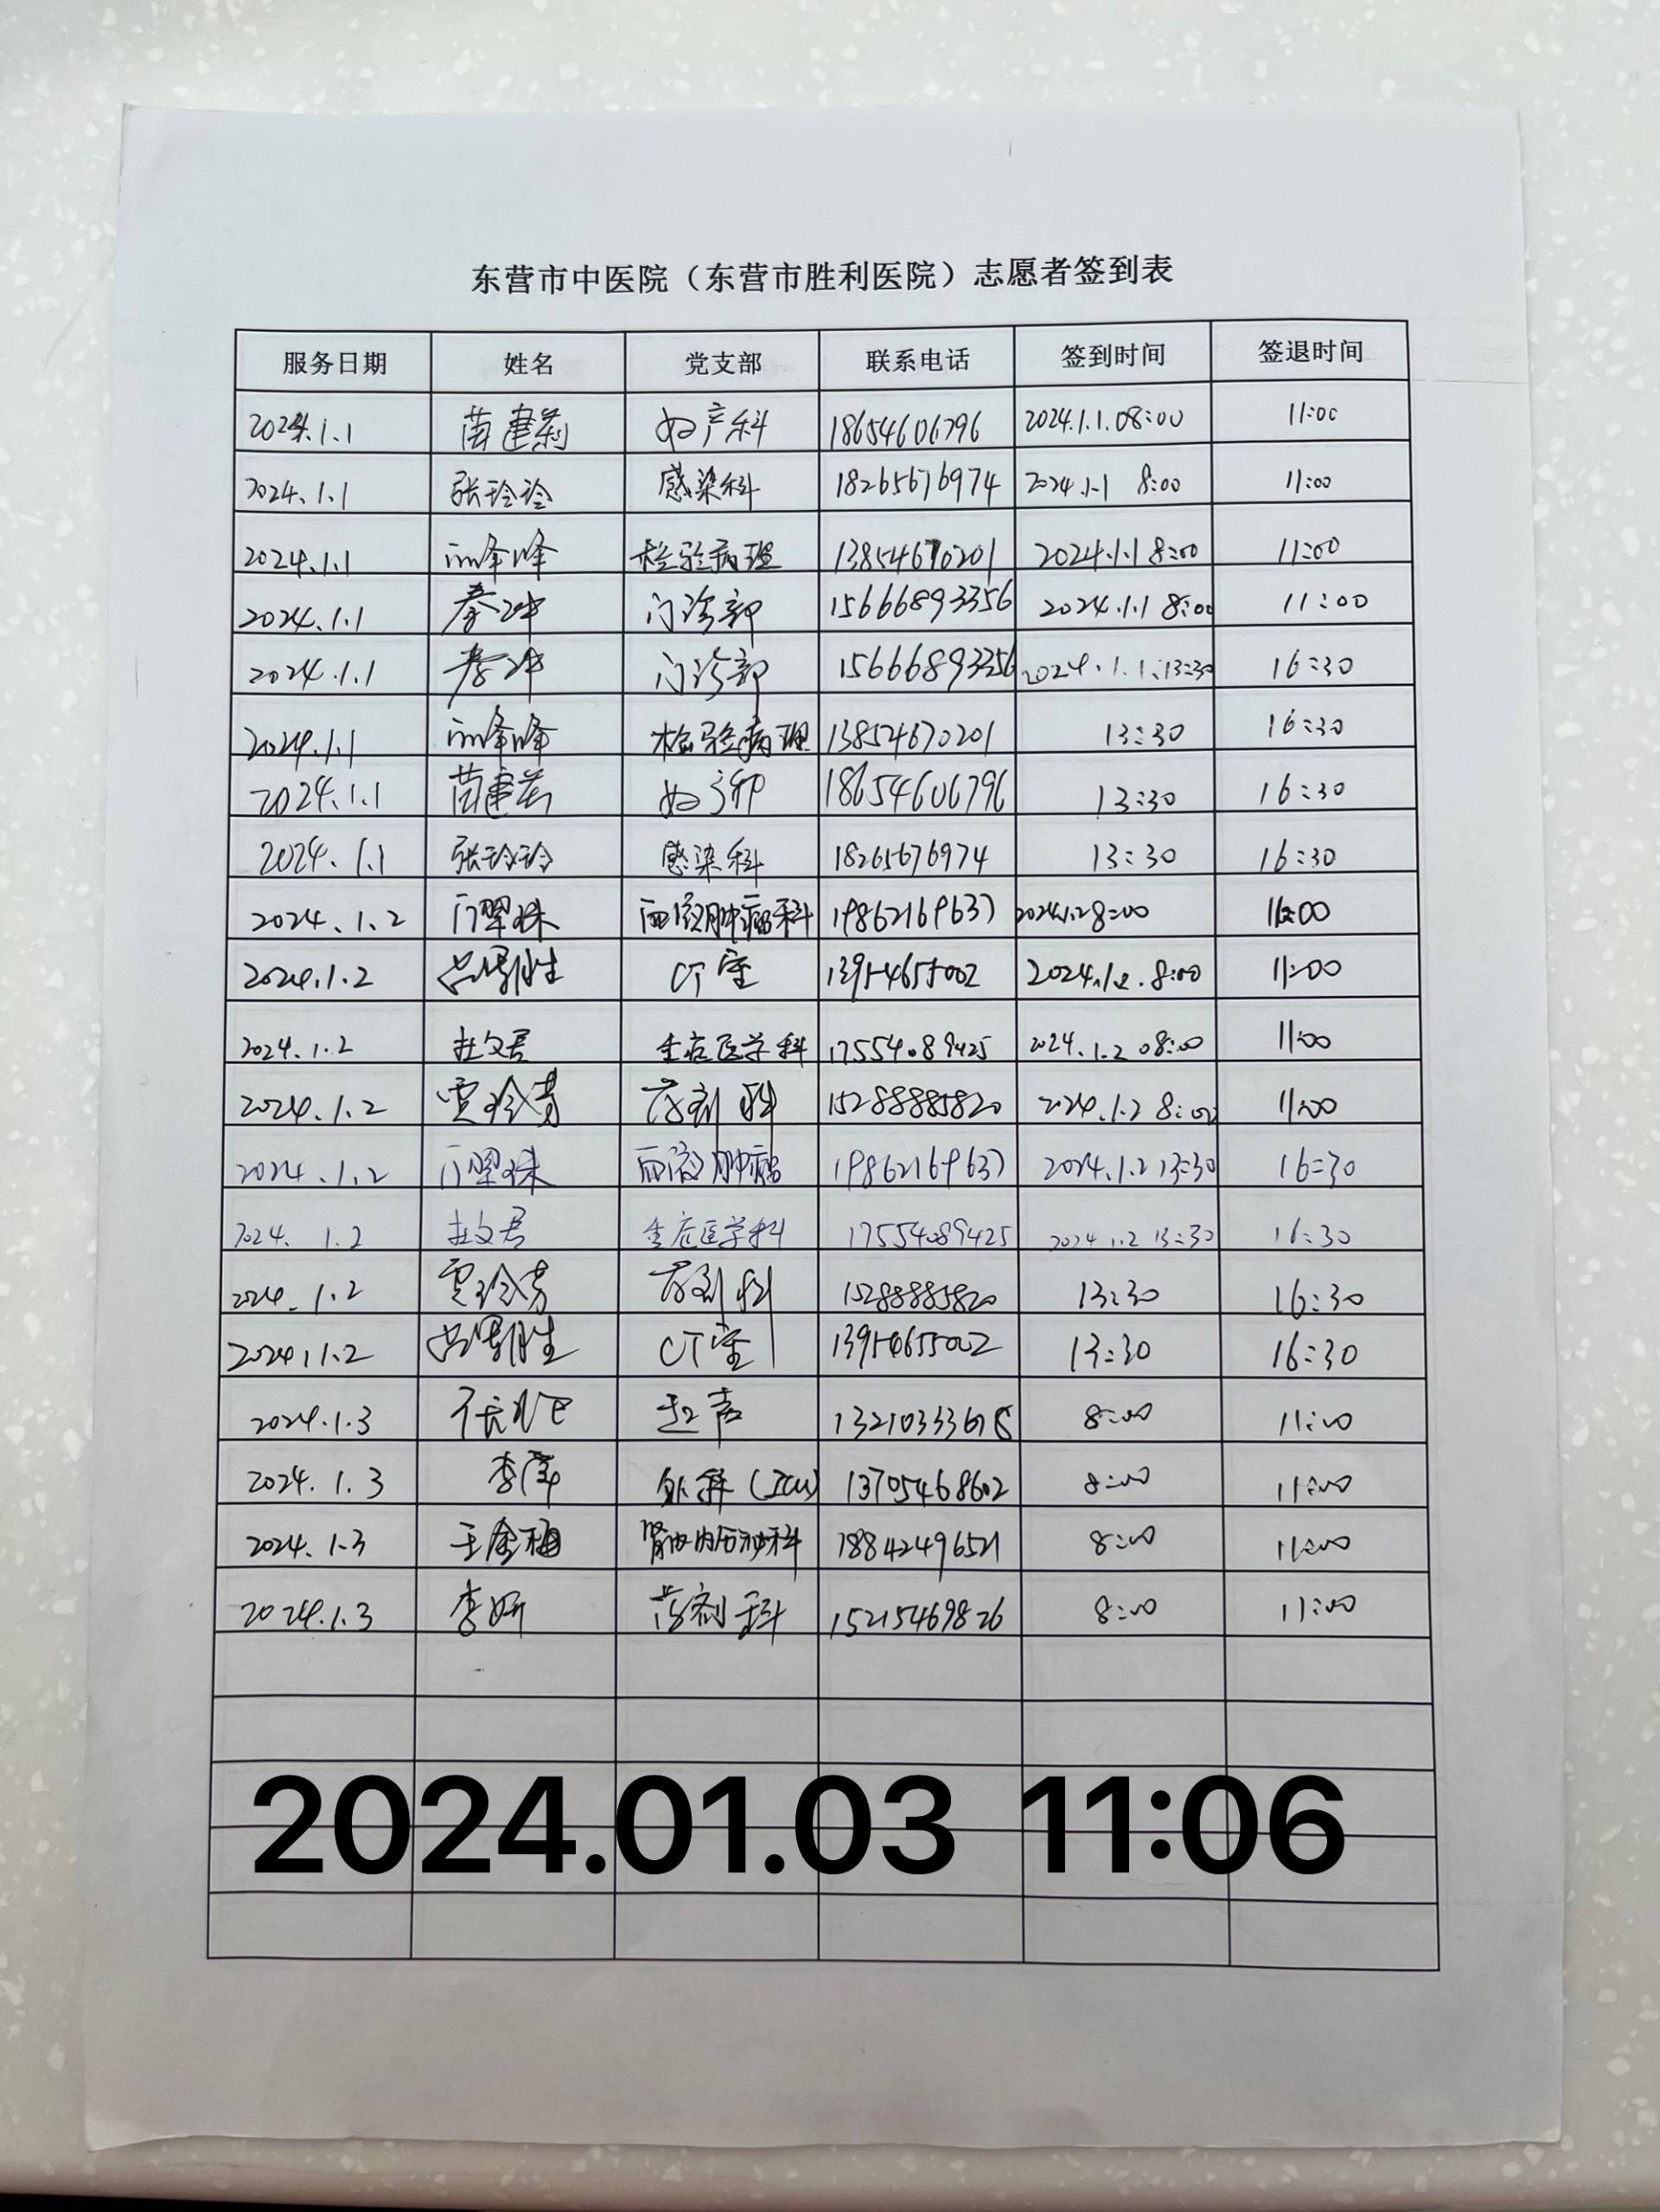 东营市中医院（东营市胜利医院）志愿者签到表
服务日期 姓名 党支部 联系电话 签到时间 签退时间
2024.1.1 苗建莉 妇产科 18654606796 2024.1.1.08:00 11:00
2024.1.1 张玲玲 感染科 18265676974 2024.1.1 8:00 11:00
2024.1.1 峰峰 检验病理 13854670201 2024.1.1 8:00 11:00
2024.1.1 秦冲 门诊部 15666893356 2024.1.1 8:00 11:00
2024.1.1 秦冲 门诊部 15666893356 2024.1.1.13:30 16:30
2024.1.1 峰峰 检验病理 13854670201 13:30 16:30
2024.1.1 苗建莉 妇产科 18654606796 13:30 16:30
2024.1.1 张玲玲 感染科 18265676974 13:30 16:30
2024.1.2 血液肿瘤科 19862169637 2024.1.2 8:00 11:00
2024.1.2 CT室 13954655002 2024.1.2.8:00 11:00
2024.1.2 杜文君 重症医学科 17554089425 2024.1.2 08:00 11:00
2024.1.2 贾玲芳 药剂科 15288885820 2024.1.2 8:00 11:00
2024.1.2 血液肿瘤 19862169637 2024.1.2 13:30 16:30
2024.1.2 杜文君 重症医学科 17554089425 2024.1.2 13:30 16:30
2024.1.2 贾玲芳 药剂科 15288885820 13:30 16:30
2024.1.2 CT室 13954655002 13:30 16:30
2024.1.3 超声 13210333678 8:00 11:00
2024.1.3 李萍 外科(ICU) 13705468602 8:00 11:00
2024.1.3 王金梅 18842496521 8:00 11:00
2024.1.3 李妍 药剂科 15215469826 8:00 11:00
2024.01.03 11:06